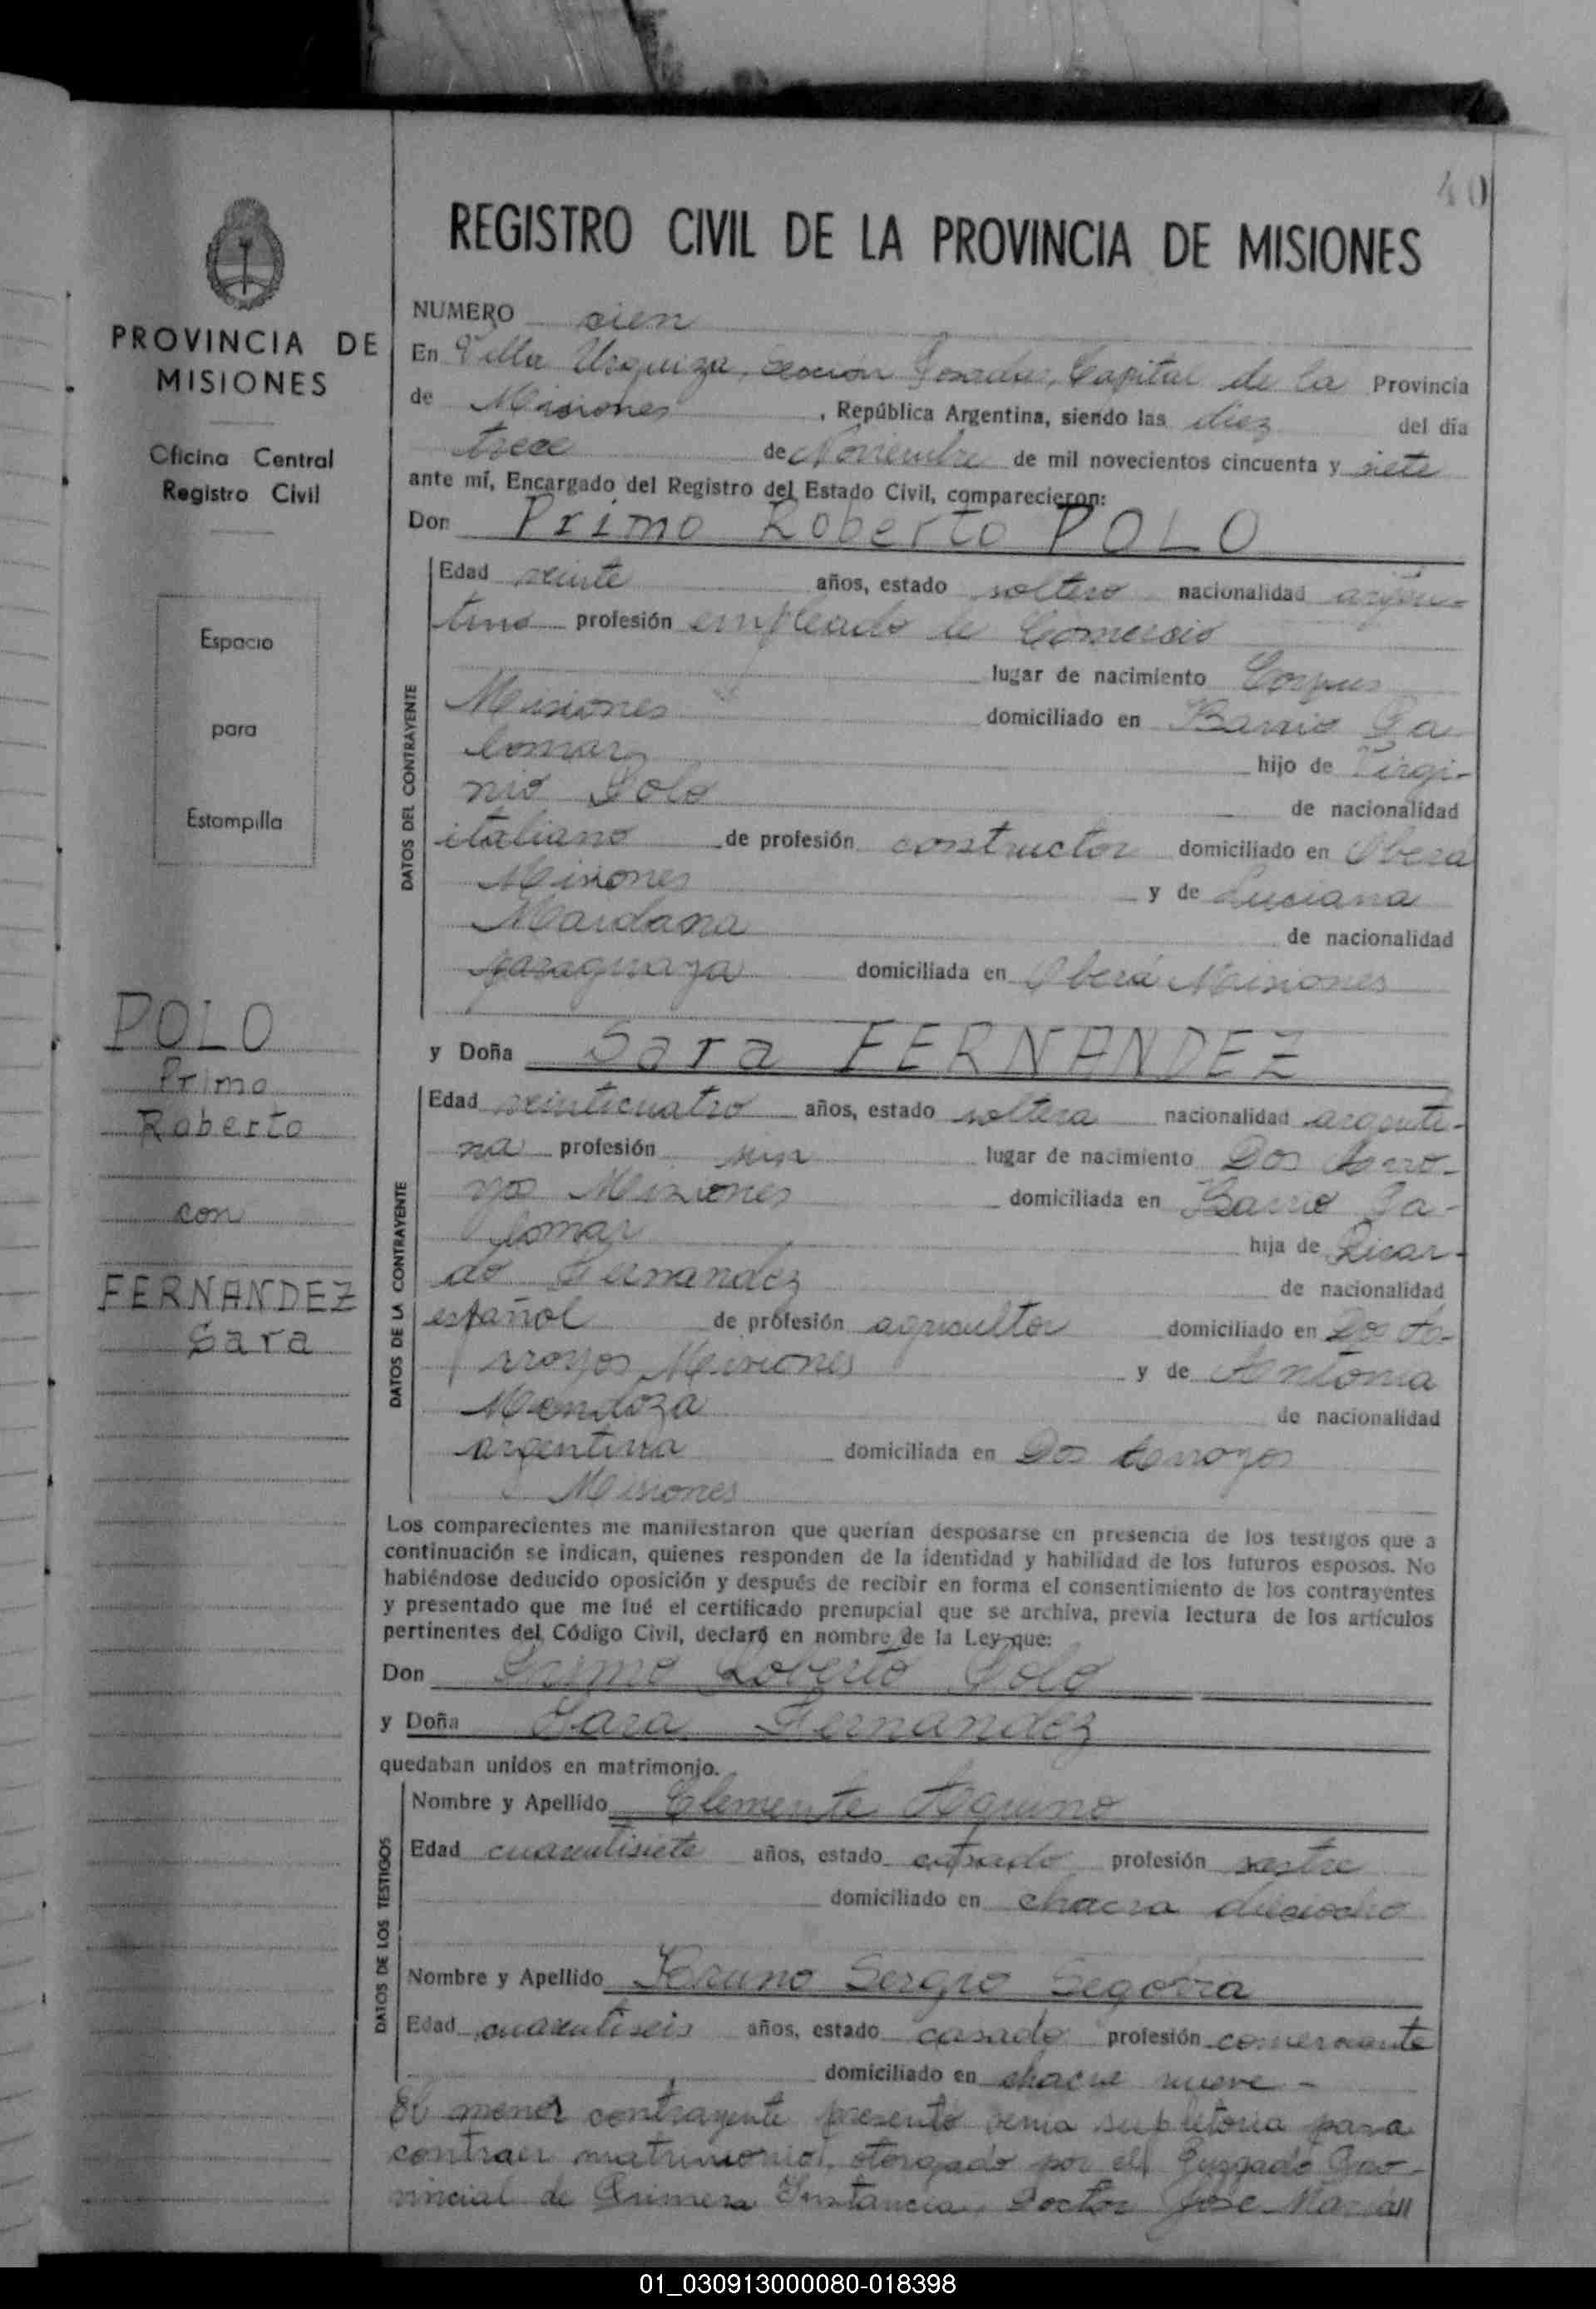 40
REGISTRO CIVIL DE LA PROVINCIA DE MISIONES
PROVINCIA DE
MISIONES
Oficina Central
Registro Civil
Espacio
para
Estampilla
POLO
Primo
Roberto
con
FERNANDEZ
Sara
NUMERO cien
En Villa Urquiza, seccion Posadas, Capital de la Provincia
de Misiones, República Argentina, siendo las diez del día
trece de Noviembre de mil novecientos cincuenta y siete
ante mí, Encargado del Registro del Estado Civil, comparecieron:
Don Primo Roberto POLO
DATOS DEL CONTRAYENTE
Edad veinte años, estado soltero nacionalidad argen-
tino profesión empleado de Comercio
lugar de nacimiento Corpus
Misiones domiciliado en Barrio Pa
lomar hijo de Virgi-
nio Polo de nacionalidad
italiano de profesión constructor domiciliado en Oberá
Misiones y de Luciana
Maidana de nacionalidad
paraguaya domiciliada en Oberá Misiones
y Doña Sara FERNANDEZ
DATOS DE LA CONTRAYENTE
Edad veinticuatro años, estado soltera nacionalidad argenti-
na profesión sin lugar de nacimiento Dos Arro-
yos Misiones domiciliada en Barrio Pa-
lomar hija de Ricar-
do Fernandez de nacionalidad
español de profesión agricultor domiciliado en Dos Ar-
rroyos Misiones y de Antonia
Mendoza de nacionalidad
argentina domiciliada en Dos Arroyos
Misiones
Los comparecientes me manifestaron que querían desposarse en presencia de los testigos que a
continuación se indican, quienes responden de la identidad y habilidad de los futuros esposos. No
habiéndose deducido oposición y después de recibir en forma el consentimiento de los contrayentes
y presentado que me fué el certificado prenupcial que se archiva, previa lectura de los artículos
pertinentes del Código Civil, declaró en nombre de la Ley que:
Don Primo Roberto Polo
y Doña Sara Fernandez
quedaban unidos en matrimonio.
DATOS DE LOS TESTIGOS
Nombre y Apellido Clemente Aquino
Edad cuarentisiete años, estado casado profesión sastre
domiciliado en chacra dieciocho
Nombre y Apellido Bruno Sergio Segovia
Edad cuarentiseis años, estado casado profesión comerciante
domiciliado en chacra nueve -
El menor contrayente presentó venia supletoria para
contraer matrimonio, otorgado por el Juzgado Pro-
vincial de Primera Instancia, Doctor José Marián
01_030913000080-018398